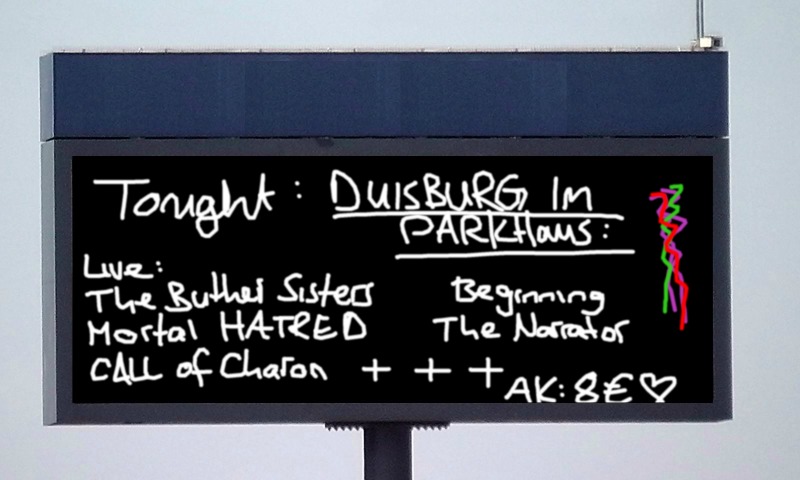 Tonight: DUISBURG Im
PARKHaus:
Live:
The Buther Sisters
Mortal HATRED
CALL of Charon + + +
Beginning
The Narrator
AK: 8€ ♡